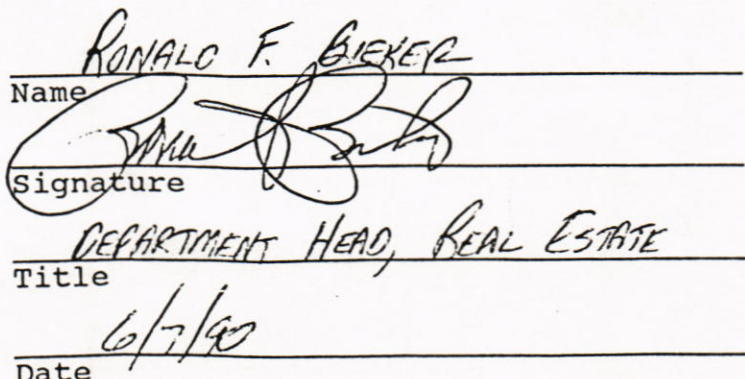 RONALD F. BIEKER
Name
Signature
DEPARTMENT HEAD, REAL ESTATE
Title
6/7/90
Date